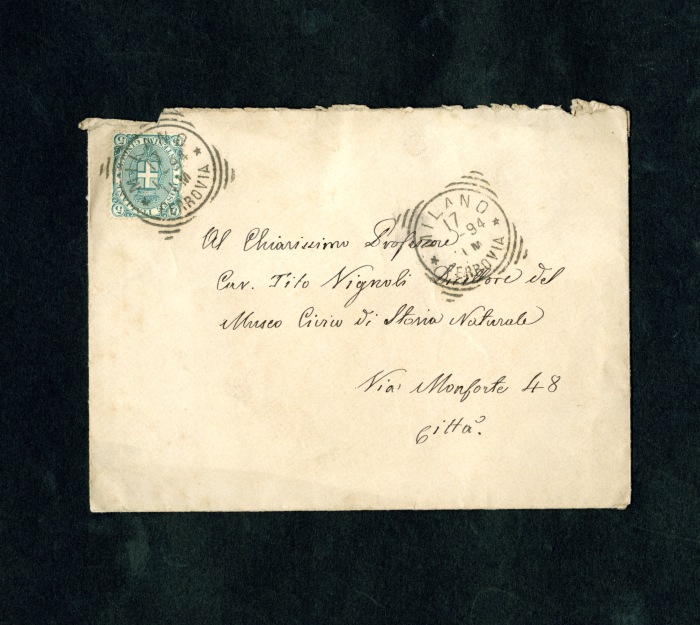 MILANO
FERROVIA
MILANO
17
-94
M
FERROVIA
Al Chiarissimo Professore
Cav. Tito Vignoli Direttore del
Museo Civico di Storia Naturale
Via Monforte 48
Città.